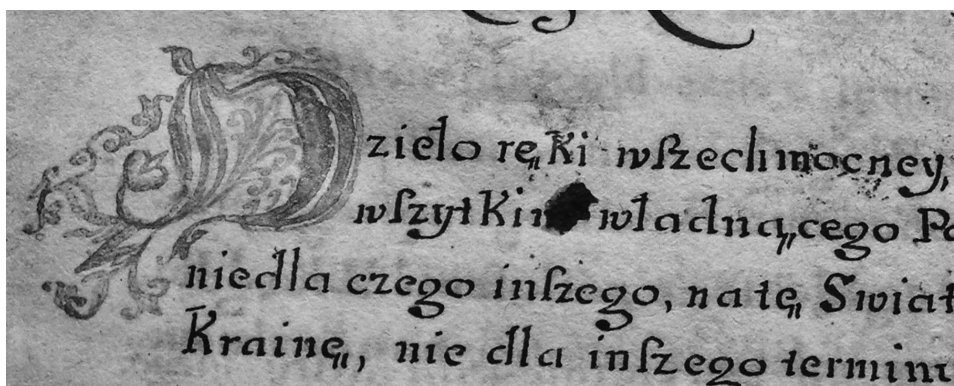 Dzieło ręki wſzechmocney,
wſzytkim władnącego
niedla czego inſzego, na tę Swiat
Krainę, nie dla inſzego termin